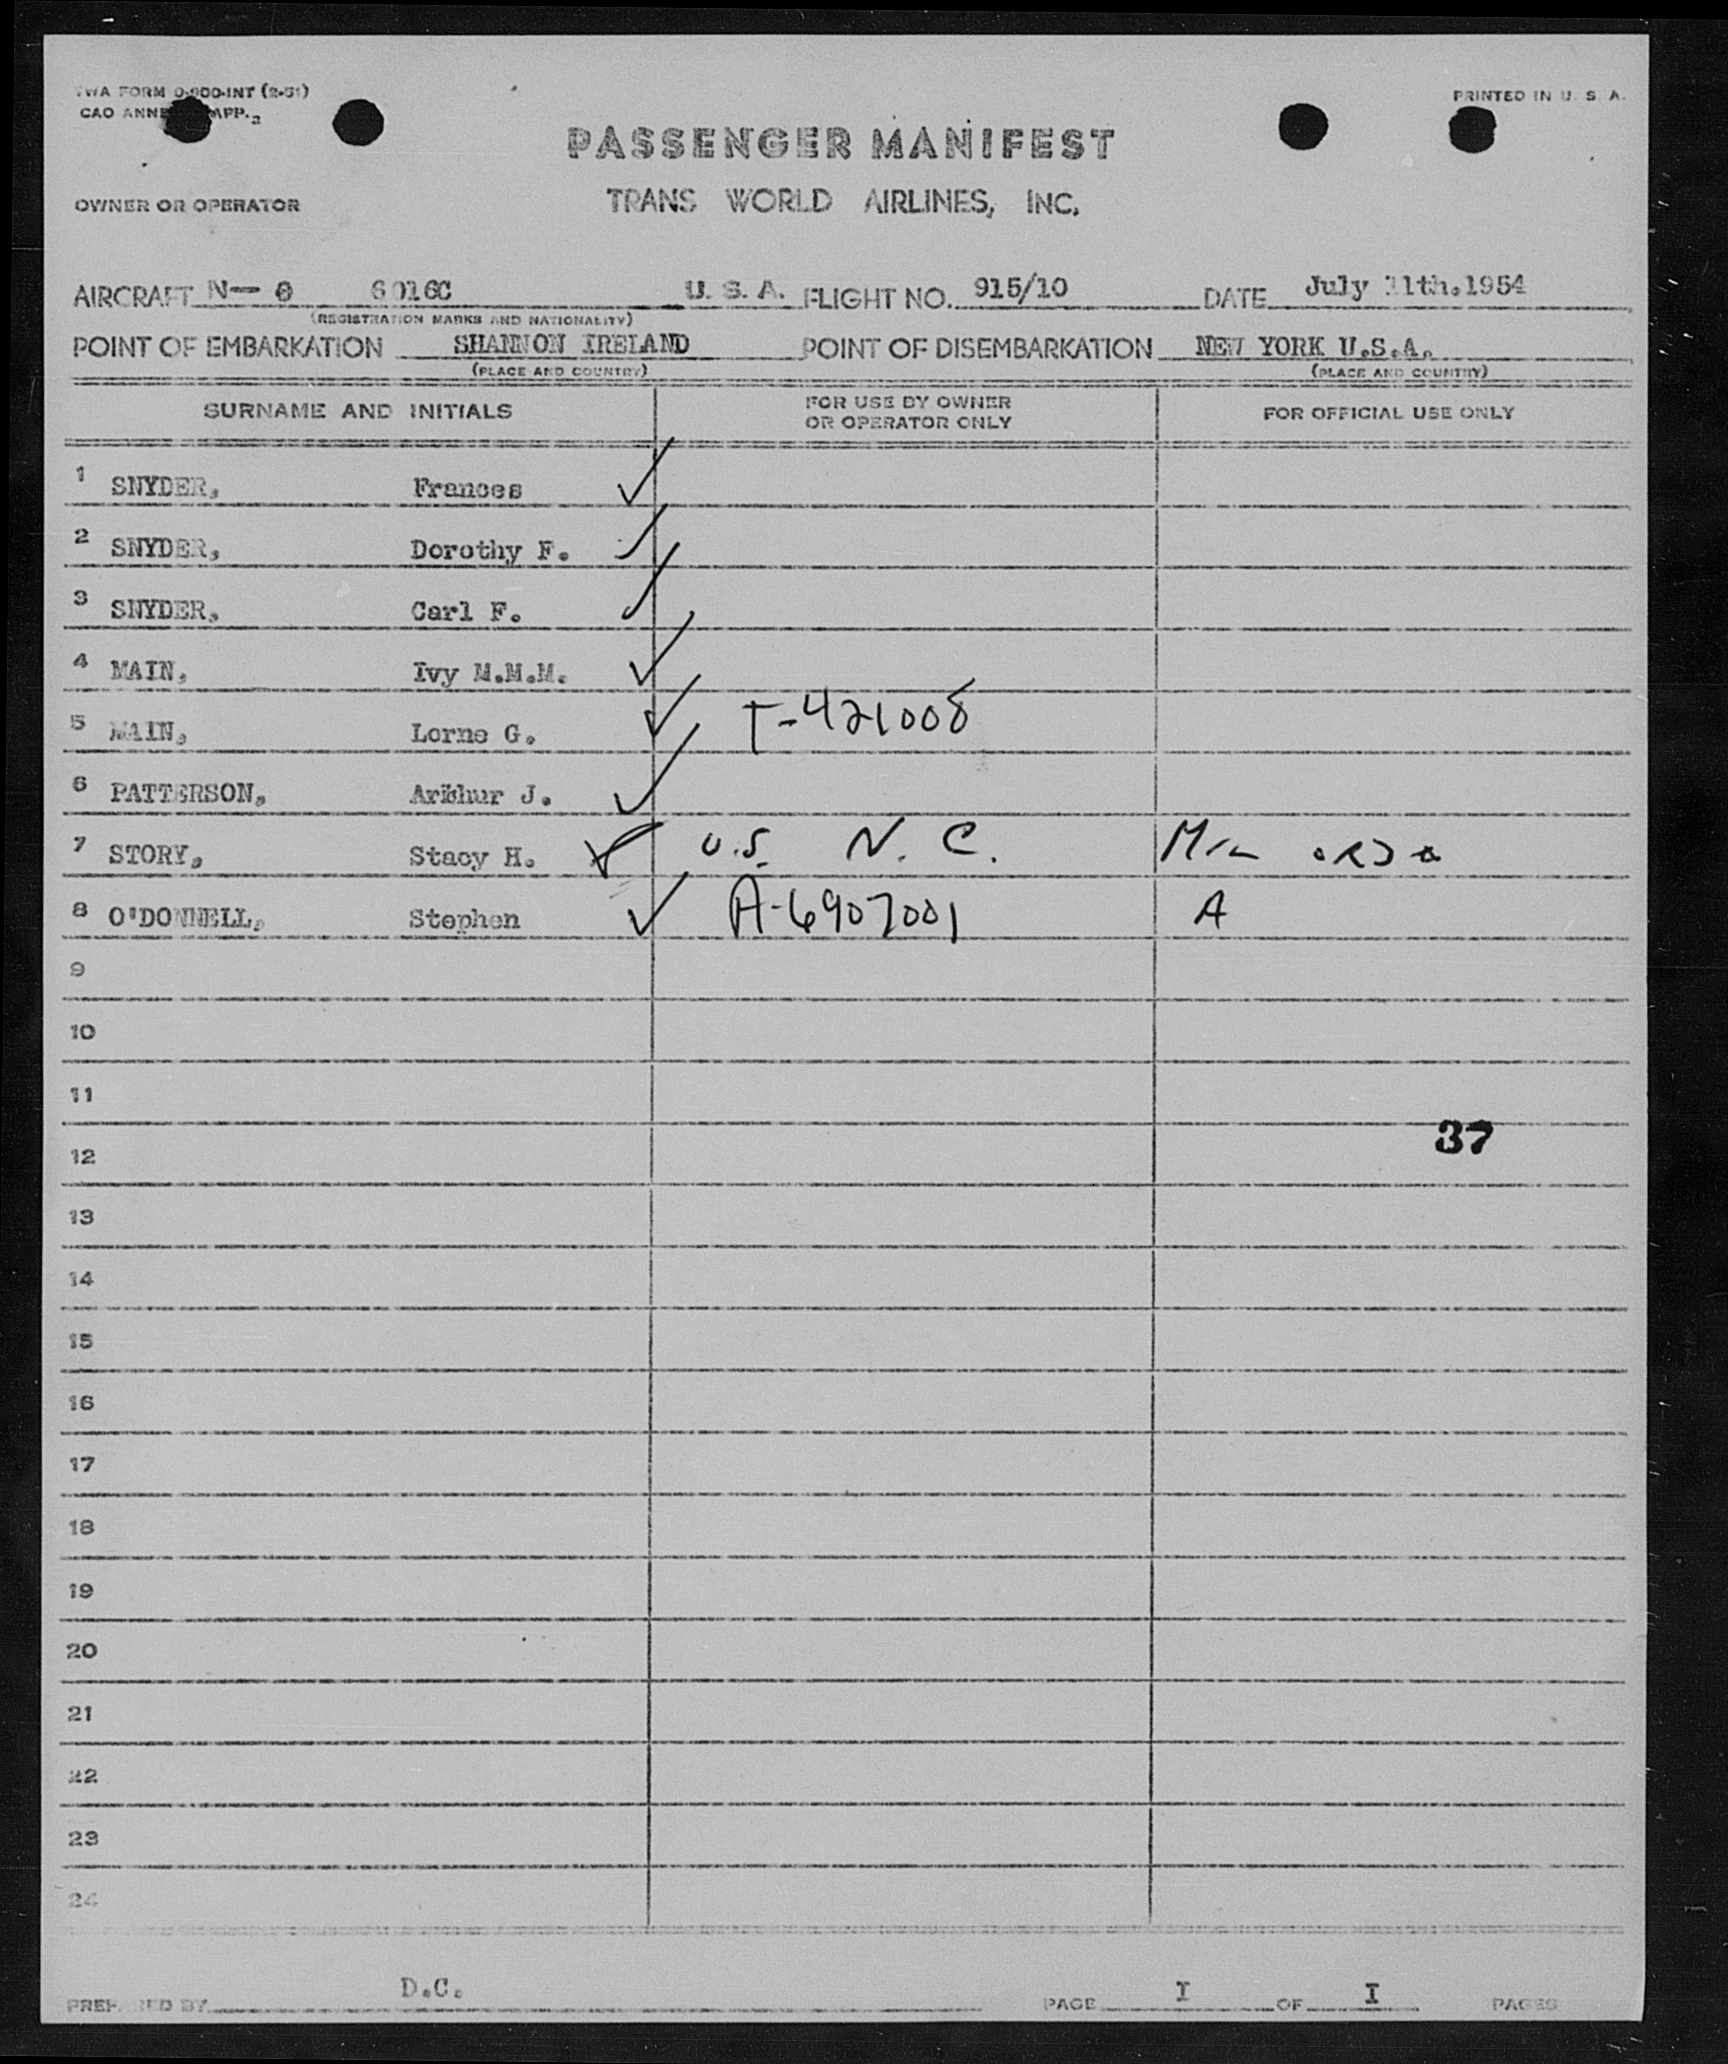 TWA FORM O-900-INT (2-51)
PRINTED IN U. S. A.
CAO ANNE APP. 2
PASSENGER MANIFEST
OWNER OR OPERATOR
TRANS WORLD AIRLINES, INC.
AIRCRAFT N— 6016C U. S. A. FLIGHT NO. 915/10 DATE July 11th.1954
(REGISTRATION MARKS AND NATIONALITY)
POINT OF EMBARKATION SHANNON IRELAND POINT OF DISEMBARKATION NEW YORK U.S.A.
(PLACE AND COUNTRY) (PLACE AND COUNTRY)
SURNAME AND INITIALS FOR USE BY OWNER OR OPERATOR ONLY FOR OFFICIAL USE ONLY
1 SNYDER, Frances ✓
2 SNYDER, Dorothy F. ✓
3 SNYDER, Carl F. ✓
4 MAIN, Ivy M.M.M. ✓
5 MAIN, Lorne G. ✓ T-421008
6 PATTERSON, Arthur J. ✓
7 STORY, Stacy H. ✓ U.S. N. C.
8 O'DONNELL, Stephen ✓ A-6907001 A
9
10
11
37
12
13
14
15
16
17
18
19
20
21
22
23
24
PREPARED BY D.C. PAGE I OF I PAGES